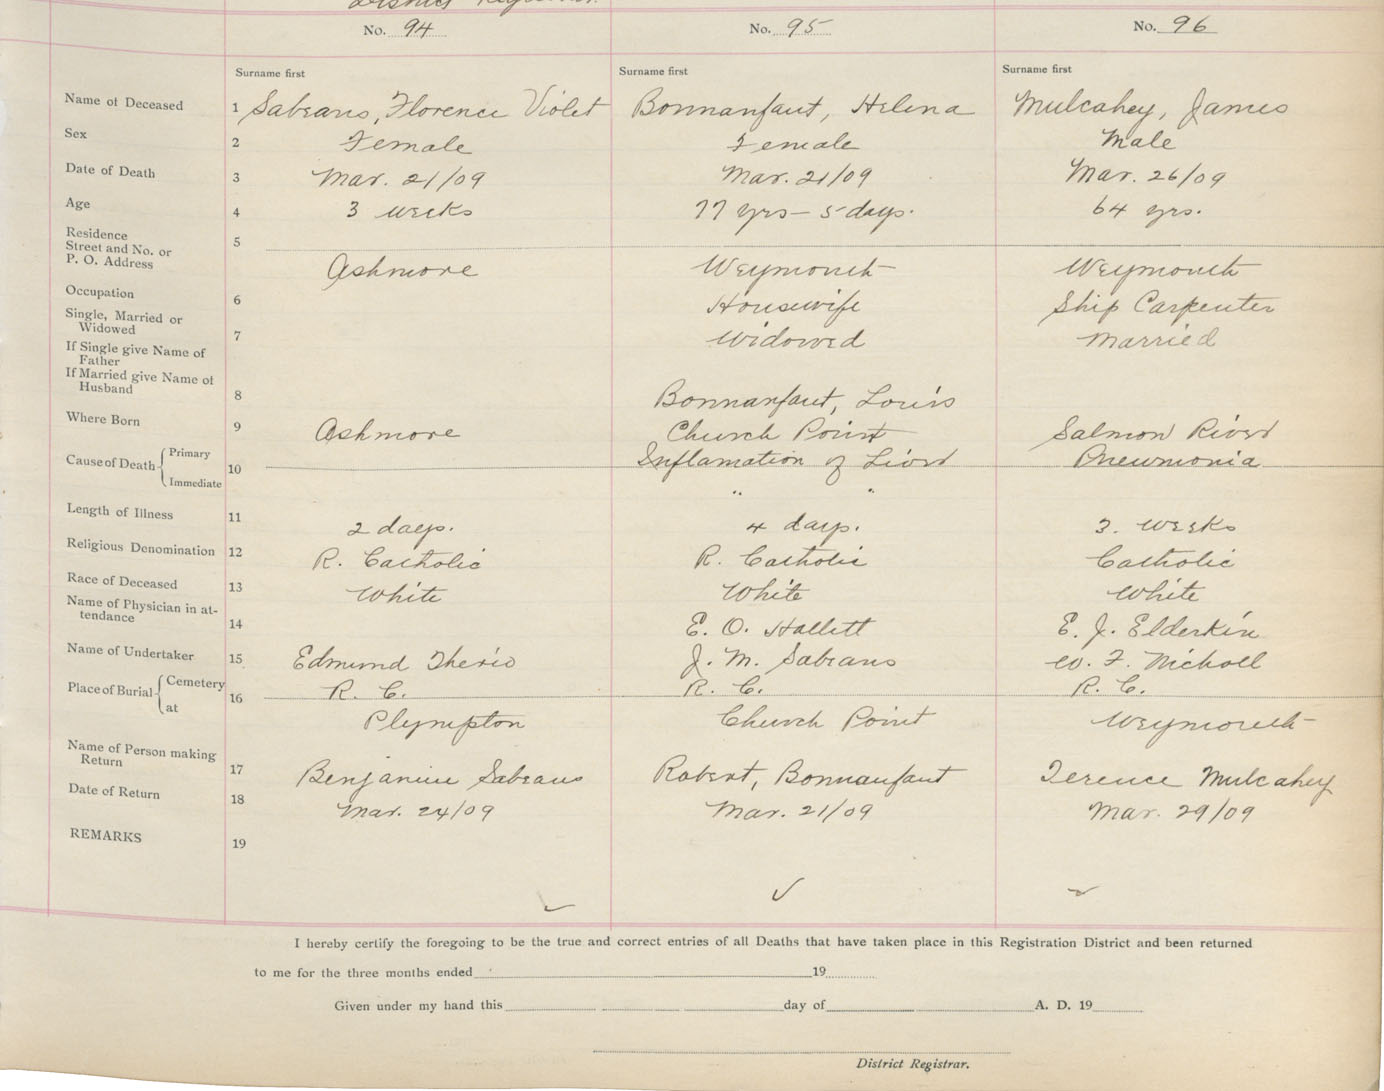 District Registrar.
No. 94 No. 95 No. 96
Surname first Surname first Surname first
Name of Deceased 1 Sabeans, Florence Violet Bonnanfant, Helena Mulcahey, James
Sex 2 Female Female Male
Date of Death 3 Mar. 21/09 Mar. 21/09 Mar. 26/09
Age 4 3 weeks 77 yrs – 5 days. 64 yrs.
Residence
Street and No. or 5
P. O. Address Ashmore Weymouth Weymouth
Occupation 6 Housewife Ship Carpenter
Single, Married or
Widowed 7 Widowed Married
If Single give Name of
Father
If Married give Name of
Husband 8 Bonnanfant, Louis
Where Born 9 Ashmore Church Point Salmon River
Cause of Death { Primary 10 Inflamation of Liver Pneumonia
Immediate " "
Length of Illness 11 2 days. 4 days. 3. weeks
Religious Denomination 12 R. Catholic R. Catholic Catholic
Race of Deceased 13 White White White
Name of Physician in at-
tendance 14 E. O. Hallett E. J. Elderkin
Name of Undertaker 15 Edmund Therio J. M. Sabeans W. F. Nicholl
Place of Burial { Cemetery 16 R. C. R. C. R. C.
at Plympton Church Point Weymouth
Name of Person making
Return 17 Benjamin Sabeans Robert, Bonnanfant Terence Mulcahey
Date of Return 18 Mar. 24/09 Mar. 21/09 Mar. 29/09
REMARKS 19
I hereby certify the foregoing to be the true and correct entries of all Deaths that have taken place in this Registration District and been returned
to me for the three months ended 19
Given under my hand this day of A. D. 19
District Registrar.